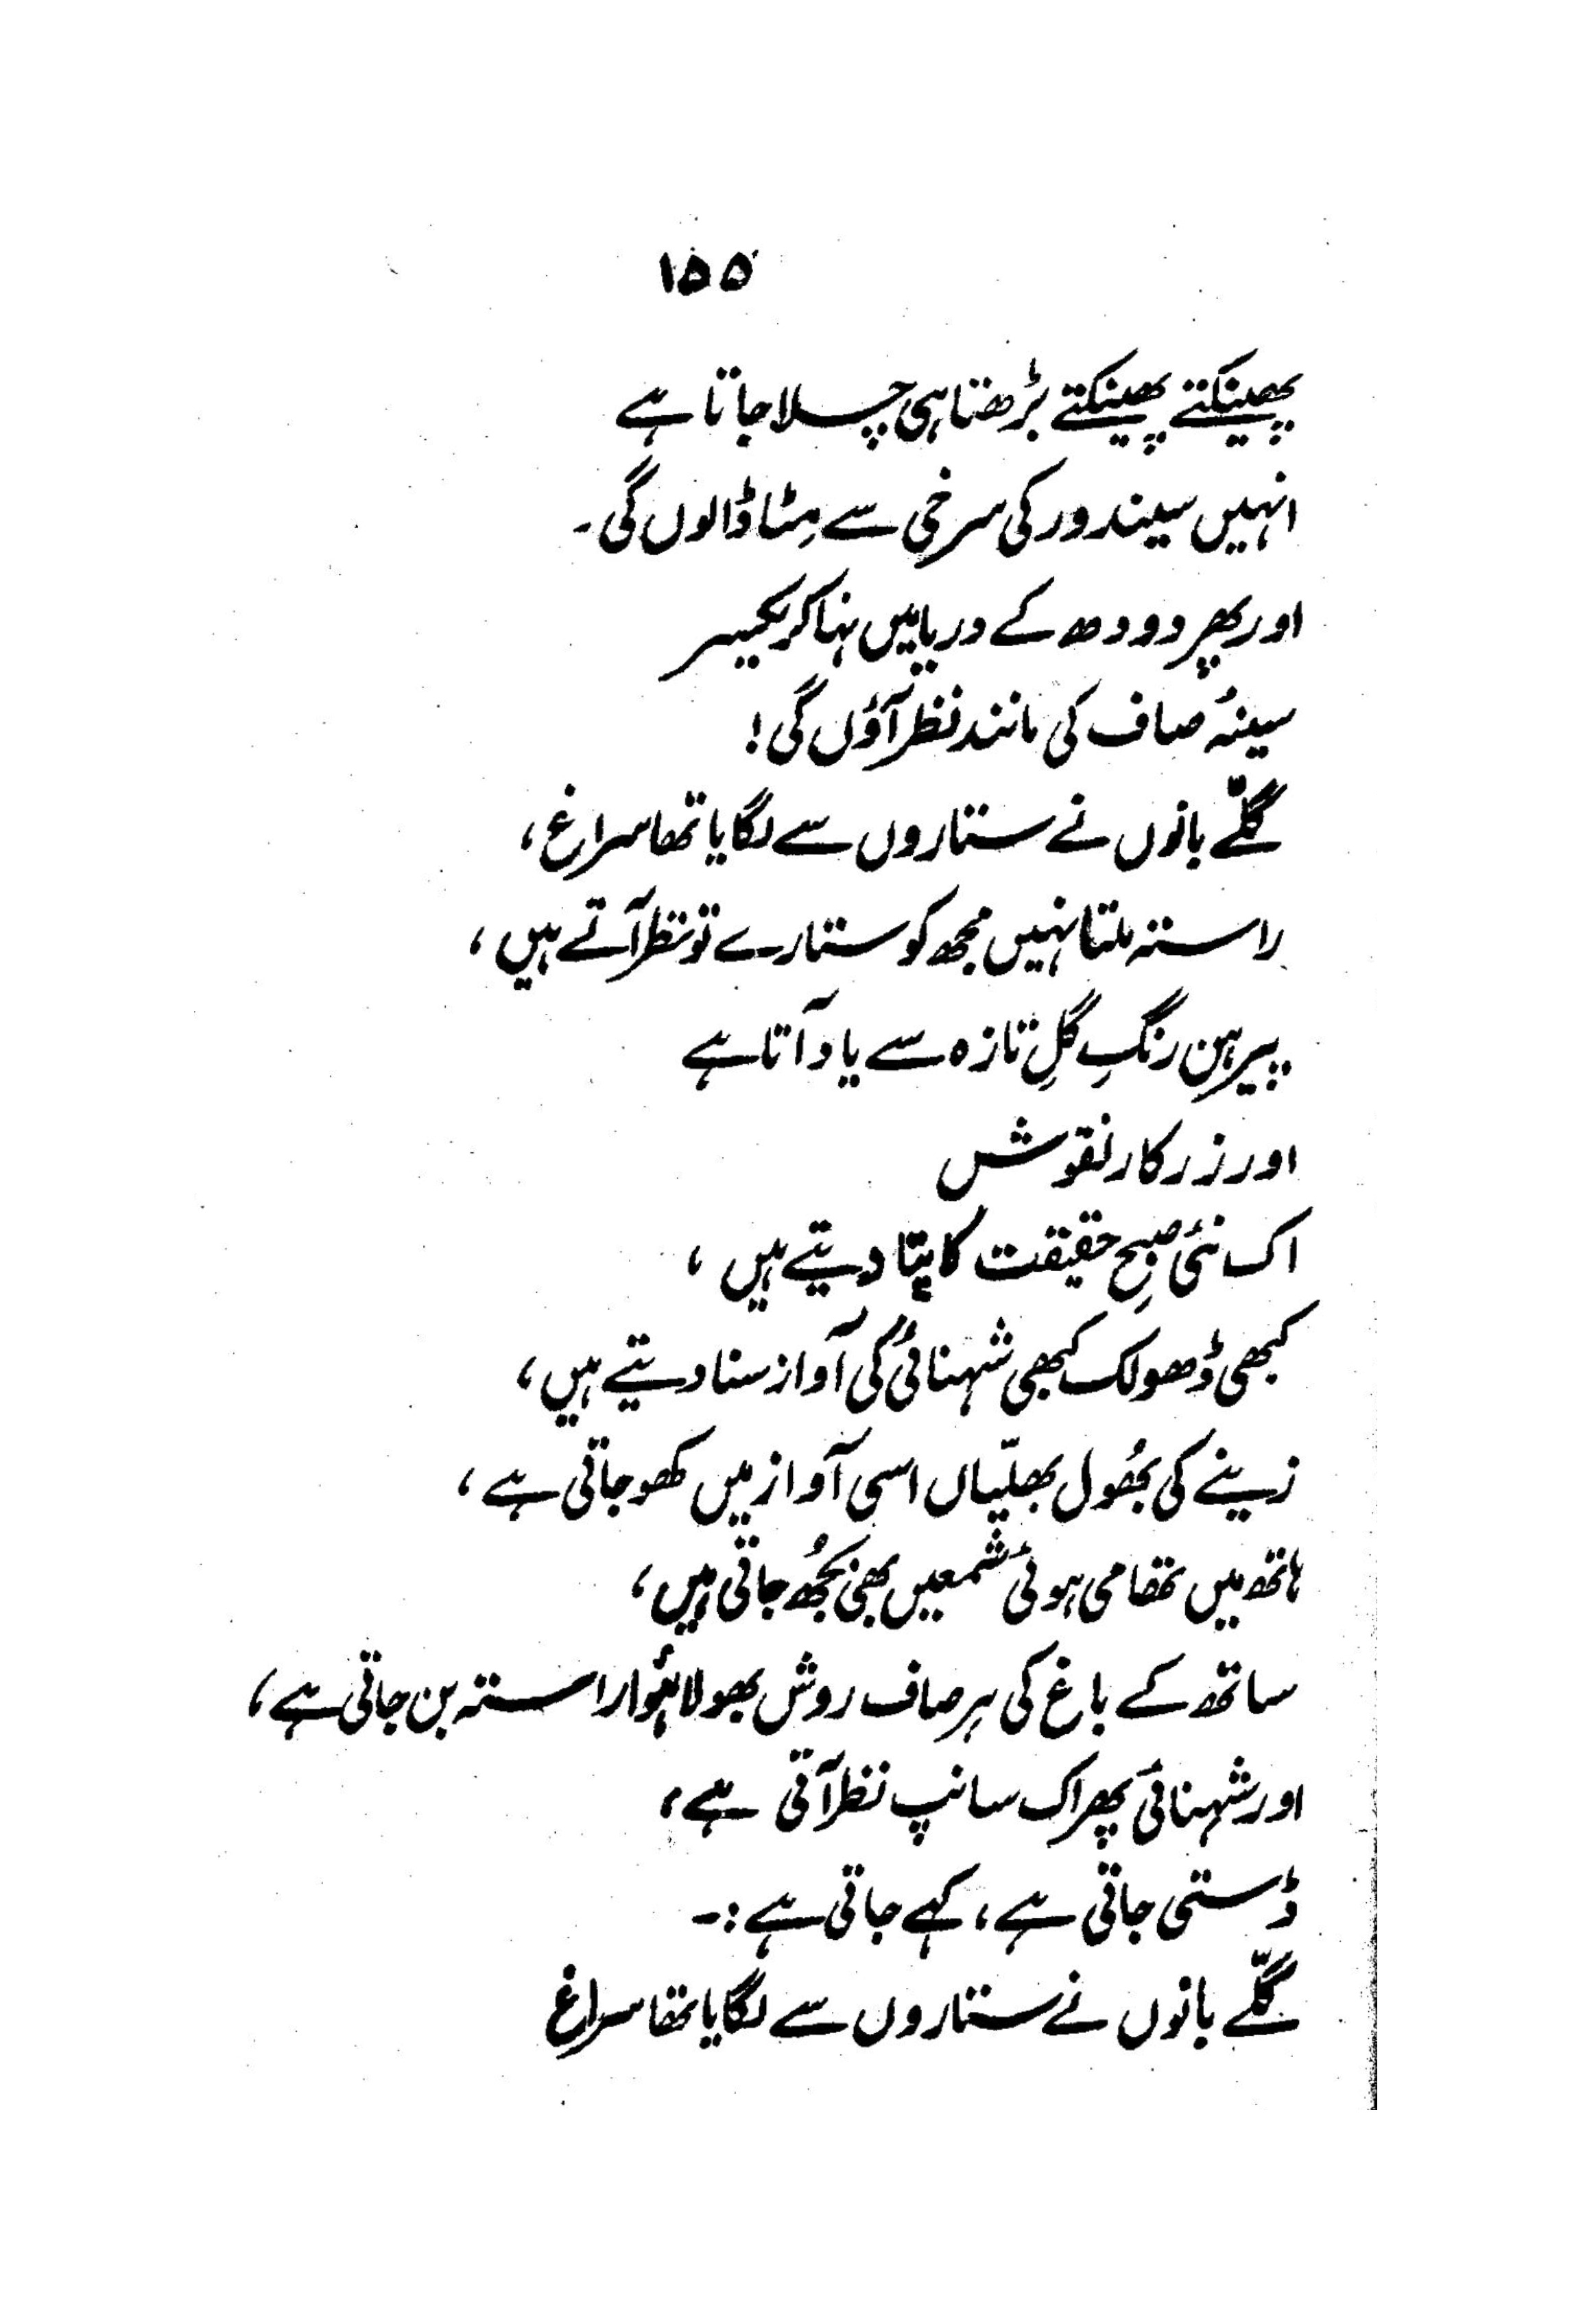 ۱۵۵
پھینکتے پھینکتے بڑھتا ہی چلا جاتا ہے
انہیں سیندور کی سرخی سے مِٹا ڈالوں گی۔
اور پھر دودھ کے دریا میں نہا کر یکسر
سینۂ صاف کی مانند نظر آؤں گی!
گلّے بانوں نے ستاروں سے لگایا تھا سراغ،
راستہ ملتا نہیں مجھ کو ستارے تو نظر آتے ہیں،
پیرہن رنگِ گلِ تازہ سے یاد آتا ہے
اور زرکار نقوش
اک نئی صبحِ حقیقت کا پتا دیتے ہیں،
کبھی ڈھولک کبھی شہنائی کی آواز سنا دیتے ہیں،
زینے کی بھُول بھلیّاں اسی آواز میں کھو جاتی ہے،
ہاتھ میں تھامی ہوئی شمعیں بھی بجُھ جاتی ہیں،
ساتھ کے باغ کی ہر صاف روش بھولا ہُوا راستہ بن جاتی ہے،
اور شہنائی پھر اک سانپ نظر آتی ہے،
ڈستی جاتی ہے، کہے جاتی ہے:۔
گلّے بانوں نے ستاروں سے لگایا تھا سراغ